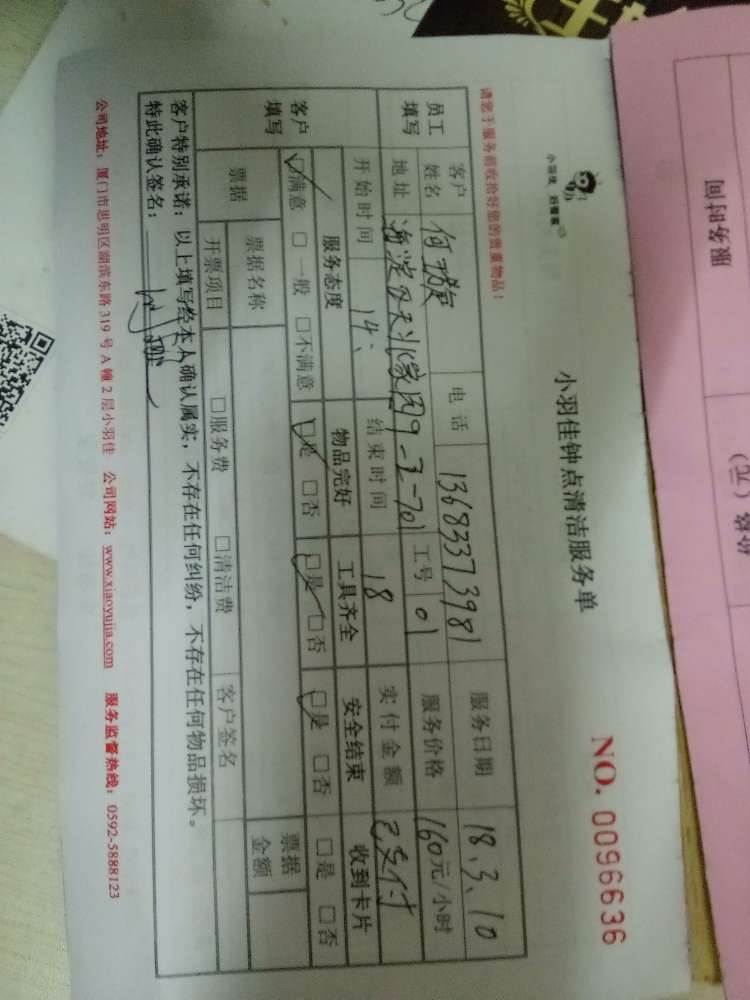 小羽佳 好管家
小羽佳钟点清洁服务单
NO. 0096636
请宽于服务前收拾好您的贵重物品！
员工填写 客户姓名 何 电话 13683373981 服务日期 18.3.10
地址 海淀区 家园9-2-701 工号 01 服务价格 160元/小时
开始时间 14、 结束时间 18 实付金额 已支付
客户填写 服务态度 物品完好 工具齐全 安全结束 收到卡片
☑满意 □一般 □不满意 ☑是 □否 ☑是 □否 ☑是 □否 □是 □否
票据 票据名称 票据金额
开票项目 □服务费 □清洁费 客户签名
客户特别承诺：以上填写经本人确认属实，不存在任何纠纷，不存在任何物品损坏。
特此确认签名：
公司地址：厦门市思明区湖滨东路319号A幢2层小羽佳 公司网站：www.xiaoyujia.com 服务监督热线：0592-5888123
服务时间